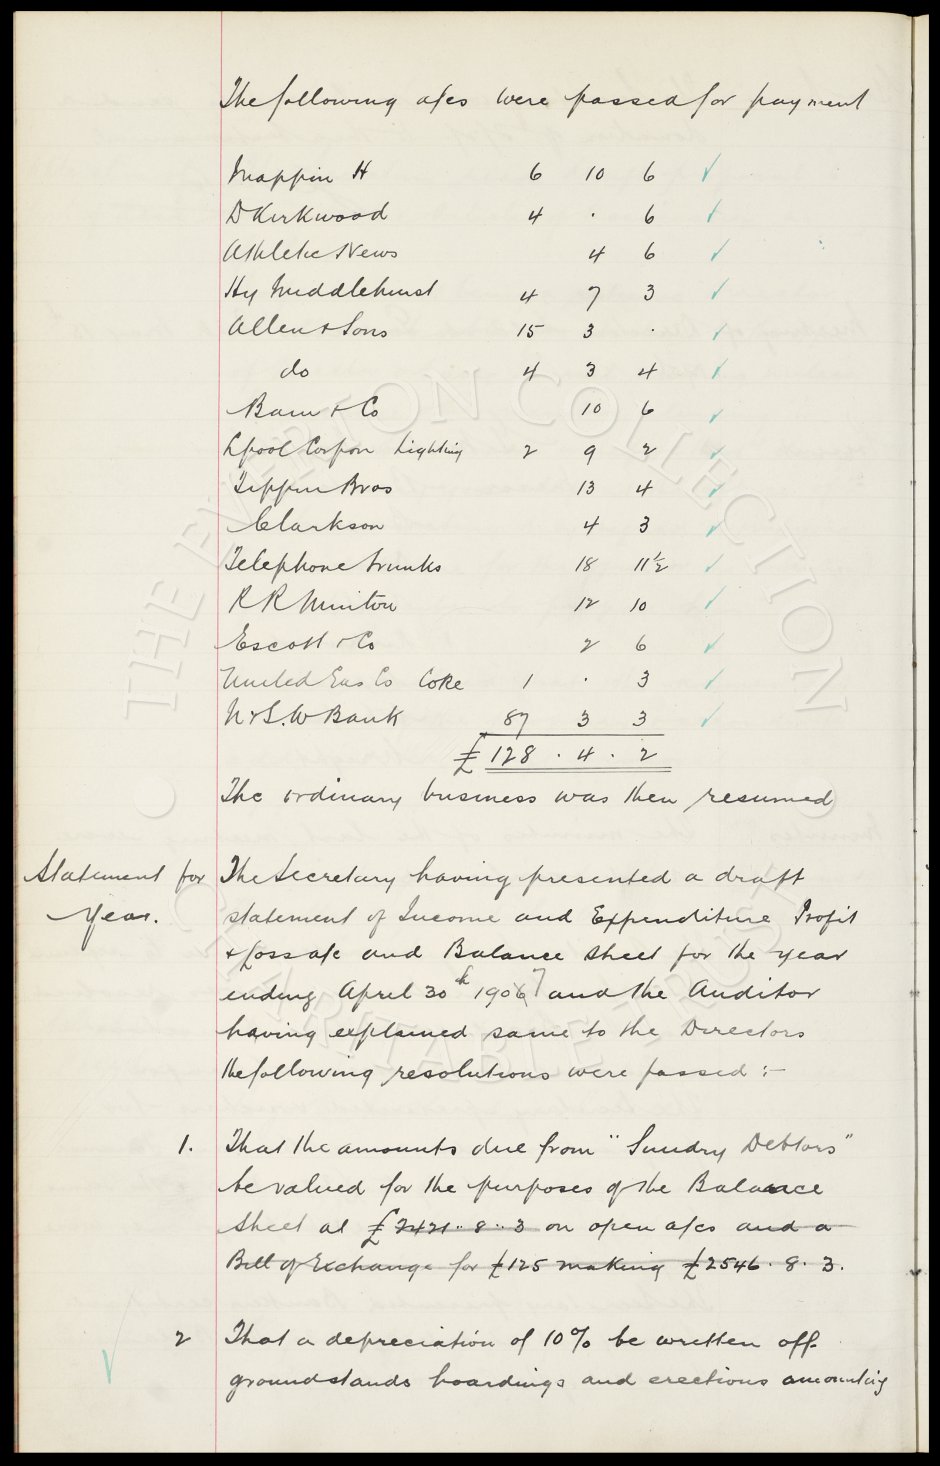 The following a/cs were passed for payment
Mappin H 6 10 6 ✓
D Kirkwood 4 . 6 ✓
Athletic News 4 6 ✓
Hy Middlehurst 4 7 3 ✓
Allen & Sons 15 3 . ✓
do 4 3 4 ✓
& Co 10 6 ✓
Lpool Corpon Lighting 2 9 2 ✓
Tippin Bros 13 4 ✓
Clarkson 4 3 ✓
Telephone trunks 18 11½ ✓
R R Minton 12 10 ✓
Escott & Co 2 6 ✓
United Gas Co Coke 1 . 3 ✓
N & S. W Bank 87 3 3 ✓
£ 128 . 4 . 2
The ordinary business was then resumed
Statement for Year.
The Secretary having presented a draft
statement of Income and Expenditure Profit
& Loss a/c and Balance Sheet for the year
ending April 30th 1907 and the Auditor
having explained same to the Directors
the following resolutions were passed :-
1. That the amounts due from "Sundry Debtors"
be valued for the purposes of the Balance
Sheet at £ 2421 . 8 . 3 on open a/cs and a
Bill of Exchange for £125 making £2546 . 8 . 3.
2 That a depreciation of 10% be written off
groundstands hoardings and erections amounting
THE EVERTON COLLECTION
CHARITABLE TRUST